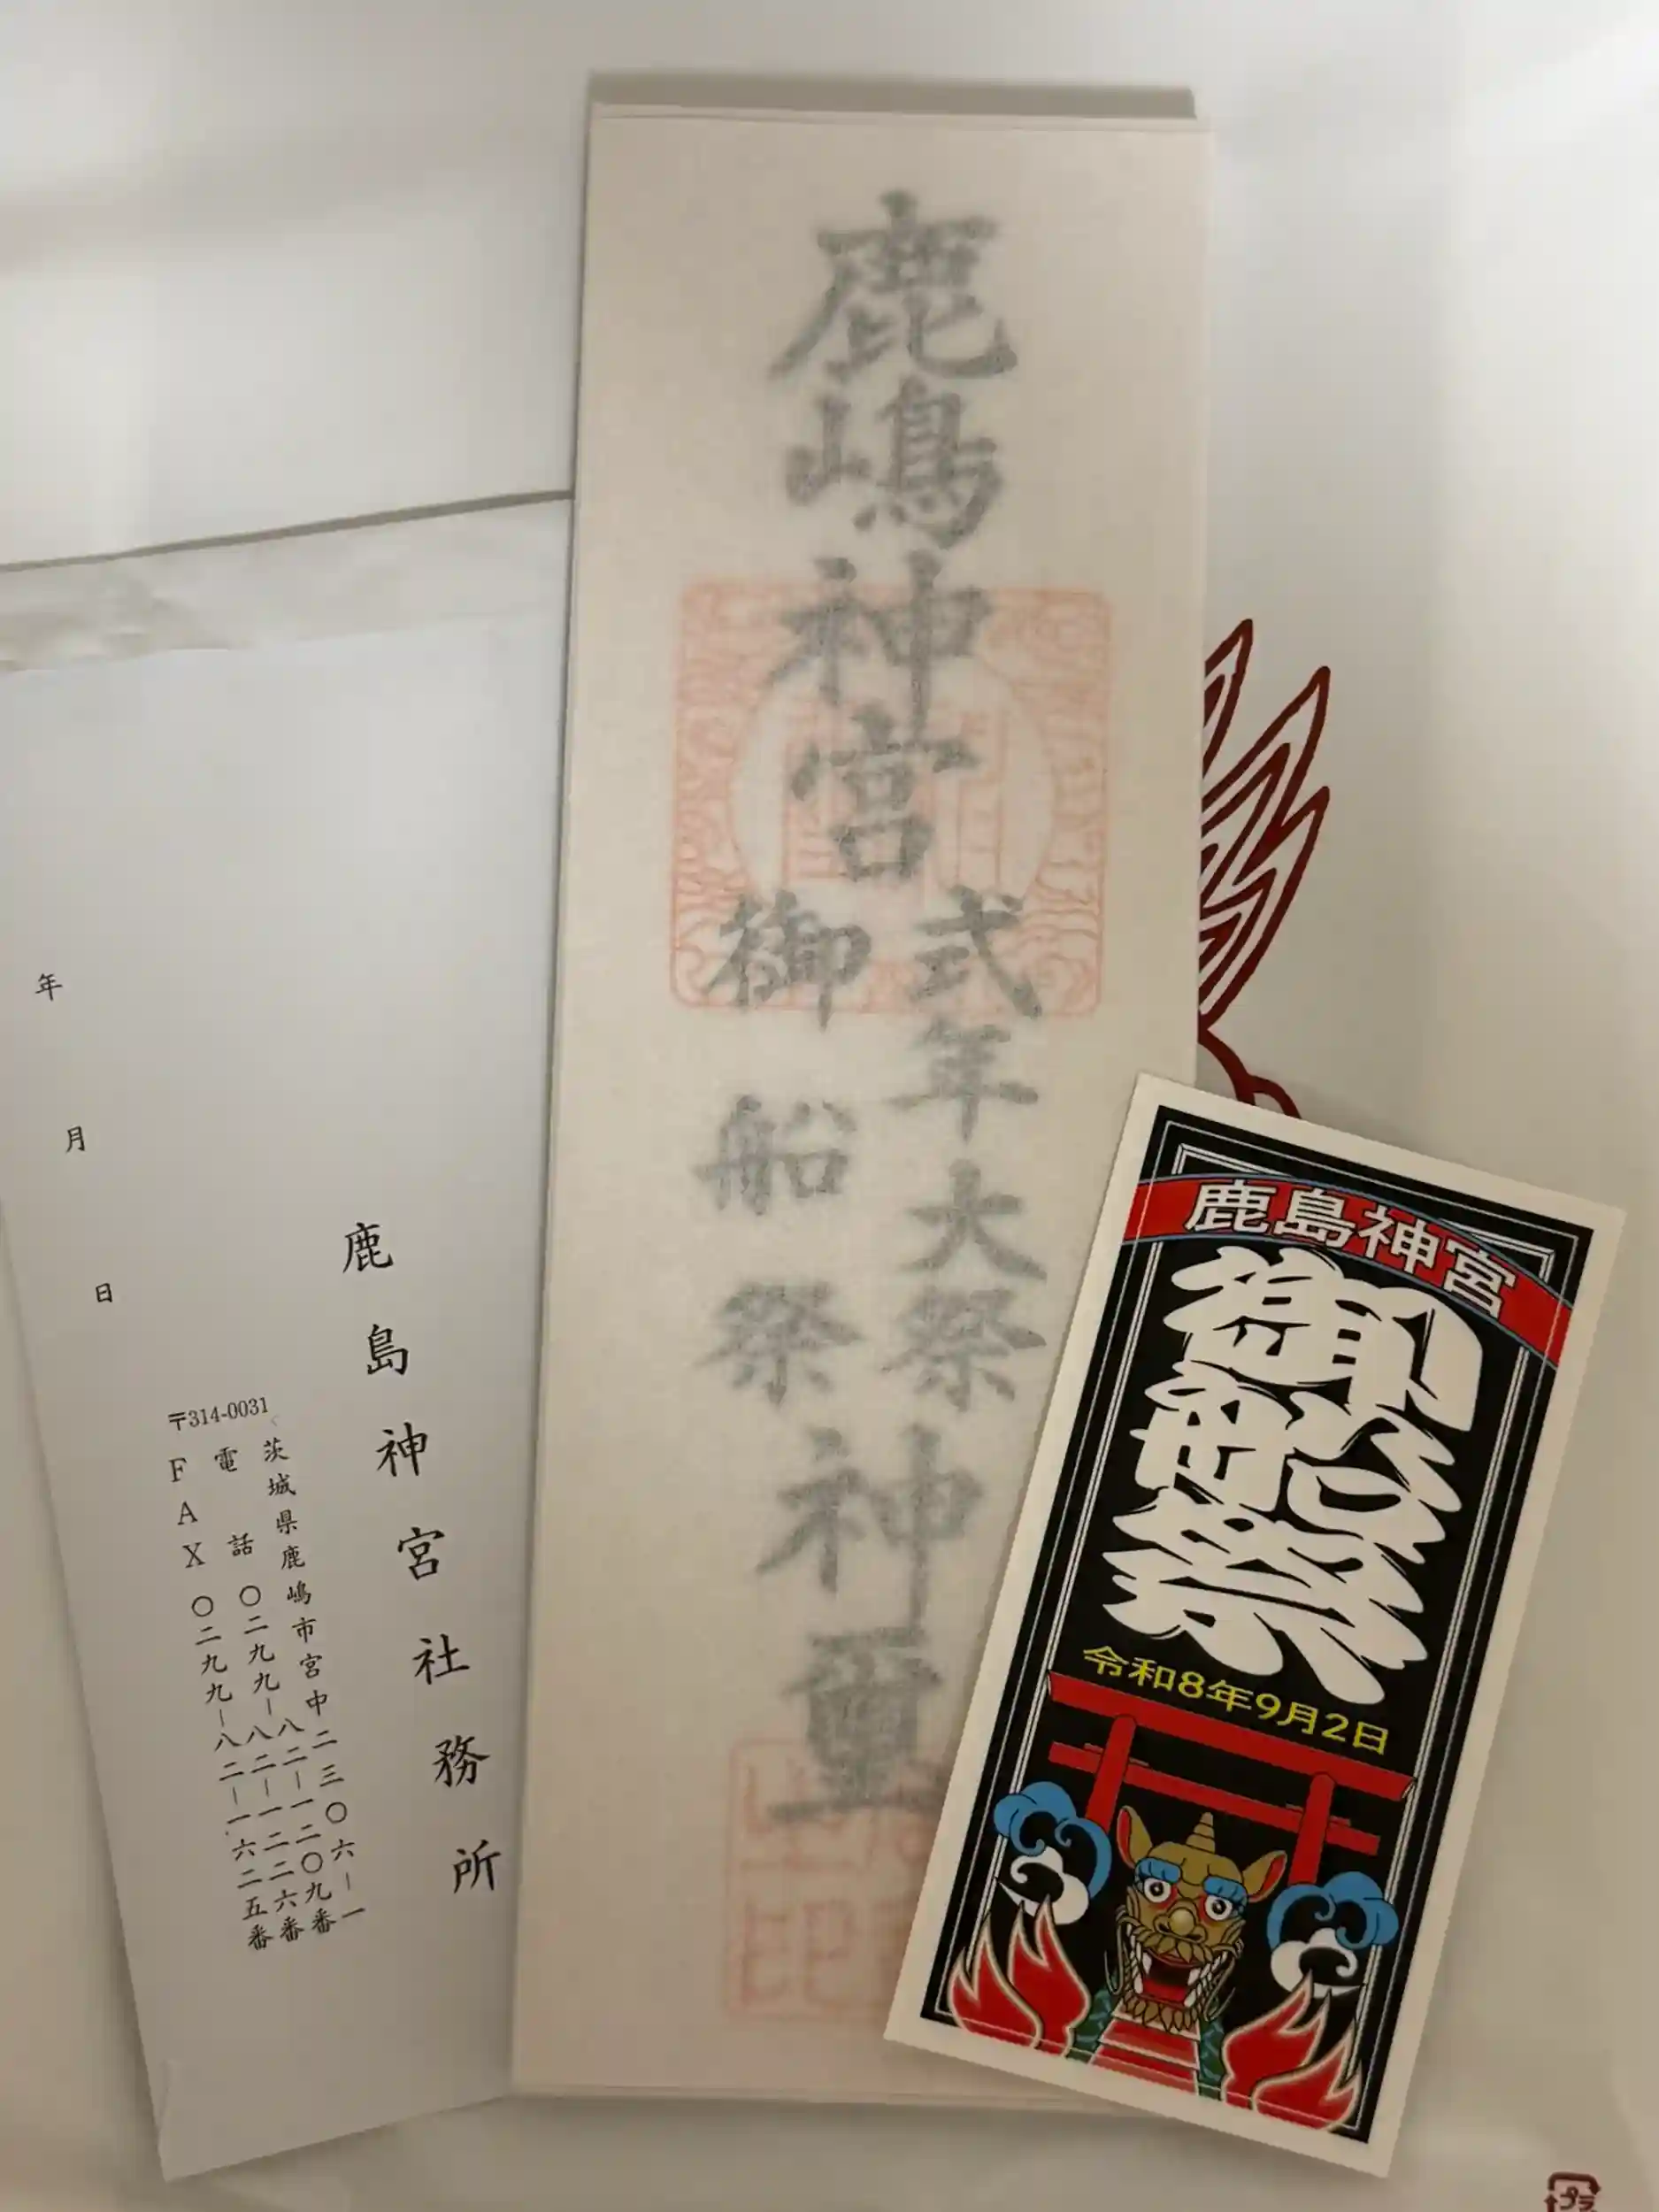 鹿嶋神宮
式年大祭
御船祭
神璽
鹿島神宮
御船祭
令和8年9月2日
鹿島神宮社務所
〒314-0031
茨城県鹿嶋市宮中二三〇六-一
電話〇二九九-八二-一二〇九番
八二-一二二六番
FAX〇二九九-八二-一六二五番
年
月
日
プラ